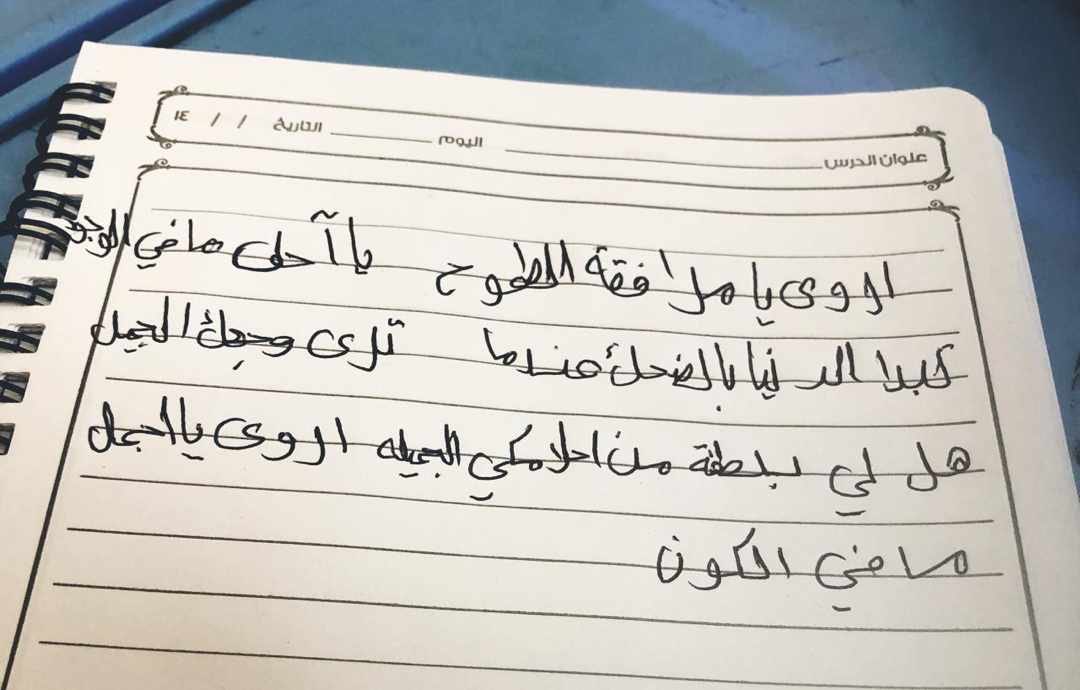 عنوان الدرس اليوم التاريخ / / ١٤
اروى يا مرافقة الطموح يا آحلى ما في الوجود
تبدا الدنيا بالضحك عندما ترى وجهك الجميل
هل لي بلطة من احلامكي الجميله اروى يا اجمل
ما في الكون